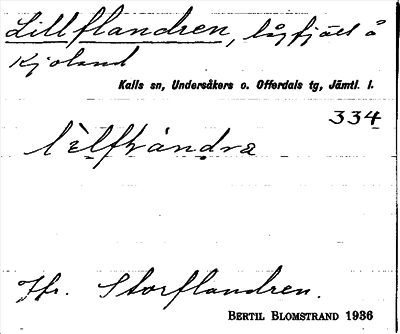 Lillflandren, lågfjäll å
Kjoland
Kalls sn, Undersåkers o. Offerdals tg, Jämtl. l.
334
Jfr. Storflandren.
BERTIL BLOMSTRAND 1936